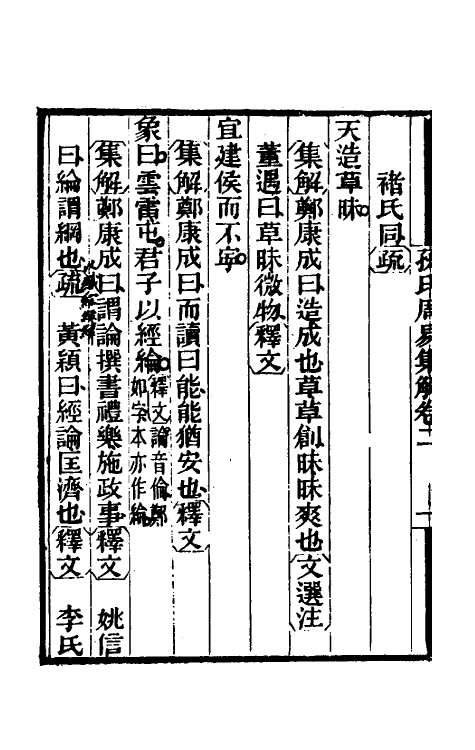 孫氏周易集解卷二
褚氏同疏
天造草昧
集解鄭康成曰造成也草草創昧昧爽也文選注
董遇曰草昧微物釋文
宜建侯而不寧
集解鄭康成曰而讀曰能能猶安也釋文
象曰雲雷屯君子以經綸釋文論音倫鄭如字本亦作綸
集解鄭康成曰謂論撰書禮樂施政事釋文 姚信
曰綸謂綱也疏 黃穎曰經論匡濟也釋文 李氏